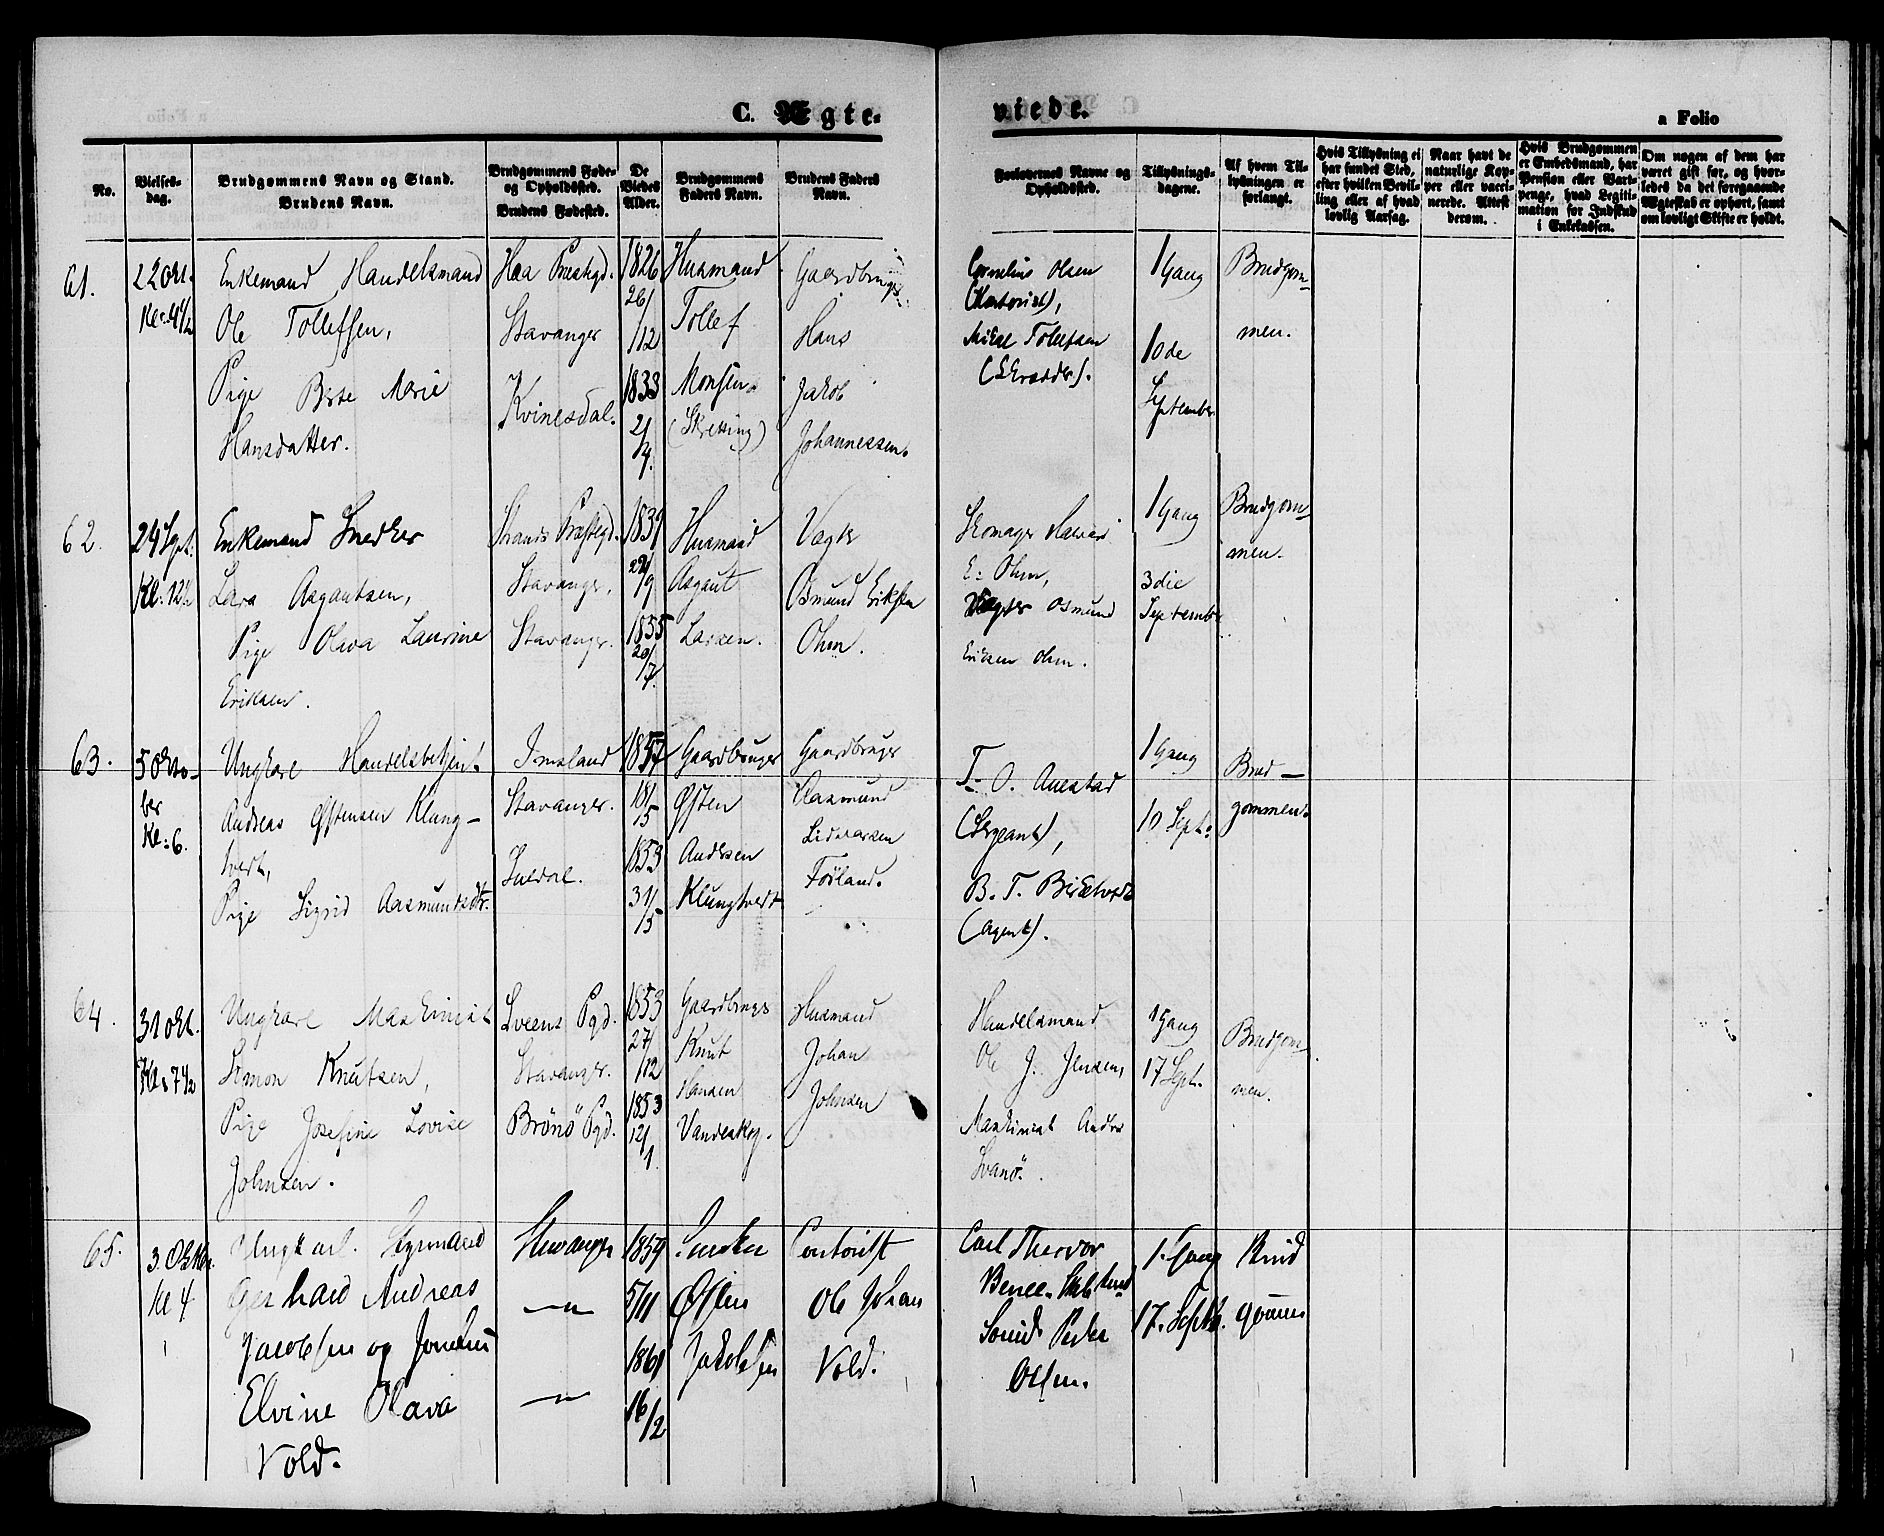 C. Ægte-
viede.
a Folio
No.
Vielses-
dag.
Brudgommens Navn og Stand.
Brudens Navn.
Brudgommens Føde-
og Opholdssted.
Brudens Fødested.
De
Viedes
Alder.
Brudgommens
Faders Navn.
Brudens Faders
Navn.
Forlovernes Navne og
Opholdssted.
Tillysnings-
dagene.
Af hvem Til-
lysningen er
forlangt.
Hvis Tillysning ei
har fundet Sted,
efter hvilken Bevil-
ling eller af hvad
lovlig Aarsag.
Naar havt de
naturlige Kop-
per eller vacci-
nerede. Attest
derom.
Hvis Brudgommen
er Embedsmand, har
Pension eller Vart-
penge, hvad Legiti-
mation for Indskud
i Enkekassen.
Om nogen af dem har
været gift før, og hvor-
ledes da det foregaaende
Ægteskab er ophørt, samt
om lovligt Skifte er holdt.
61.
22 Okt.
Kl: 4 1/2
Enkemand Handelsmand
Ole Tollefsen,
Pige Berte Marie
Hansdatter.
Haa Prestegd.
Stavanger
Kvinesdal.
1826
26/
/12
1833
2/
/4.
Husmand
Tollef
Monsen
(Skretting)
Gaardbruger
Hans
Jakob
Johannessen.
Cornelius Olsen
(Kontorist),
Mikal Tollefsen
(Skrædder).
1 Gang
10de
September
Brudgom-
men.
62.
24 Sept.
Kl: 12 1/2
Enkemand Snedker
Lars Asgautsen,
Pige Olava Laurine
Eriksen.
Strands Præstegd.
Stavanger.
Stavanger.
1839
/9
1855
20/
/7.
Husmand
Asgaut
Larsen.
Vægter
Osmund Eriksen
Ohm.
Skomager Halvard
E: Ohm,
Vægter Osmund
Eriksen Ohm.
1 Gang
3die
September
Brudgom-
men.
63.
5 Okto-
ber
Kl: 6.
Ungkarl Handelsbetjent
Andreas Østensen Klung-
tvedt,
Pige Sigrid Aasmundsdtr.
Imsland
Stavanger.
Suldal.
1857
18/
/5
1853
31/
/5
Gaardbruger
Østen
Andersen
Klungtvedt
Gaardbruger
Aasmund
Lidvarsen
Foiland.
T. O. Auestad
(Sergeant),
B. T. Birketvedt
(Agent).
1 Gang
10 Sept:
Brud-
gommen.
64.
3 Okt.
Kl: 7 1/2
Ungkarl Maskinist
Simon Knutsen,
Pige Josefine Lovise
Johnsen.
Sveens Pgd.
Stavanger.
Brönö Pgd.
1853
27/
/12
1853
12/
/1.
Gaardbruger
Knut
Hansen
Vandeskog.
Husmand
Johan
Johnsen
Handelsmand
Ole J. Jensen,
Maskinist Anders
Svanö.
1 Gang
17 Sept.
Brudgom-
men.
65.
3. Oktbr.
Kl 4
Ungkarl. Styrmand
Gerhard Andreas
Jacobsen og
Elvine Olava
Vold.
Stavanger
—"—
—"—
1859
5/11
1861
16/2
Østen
Jakobsen
Contorist
Ole Johan
Vold.
Carl Theodor
Peder
Olsen.
1. Gang
17. Septb.
Brud
gommen